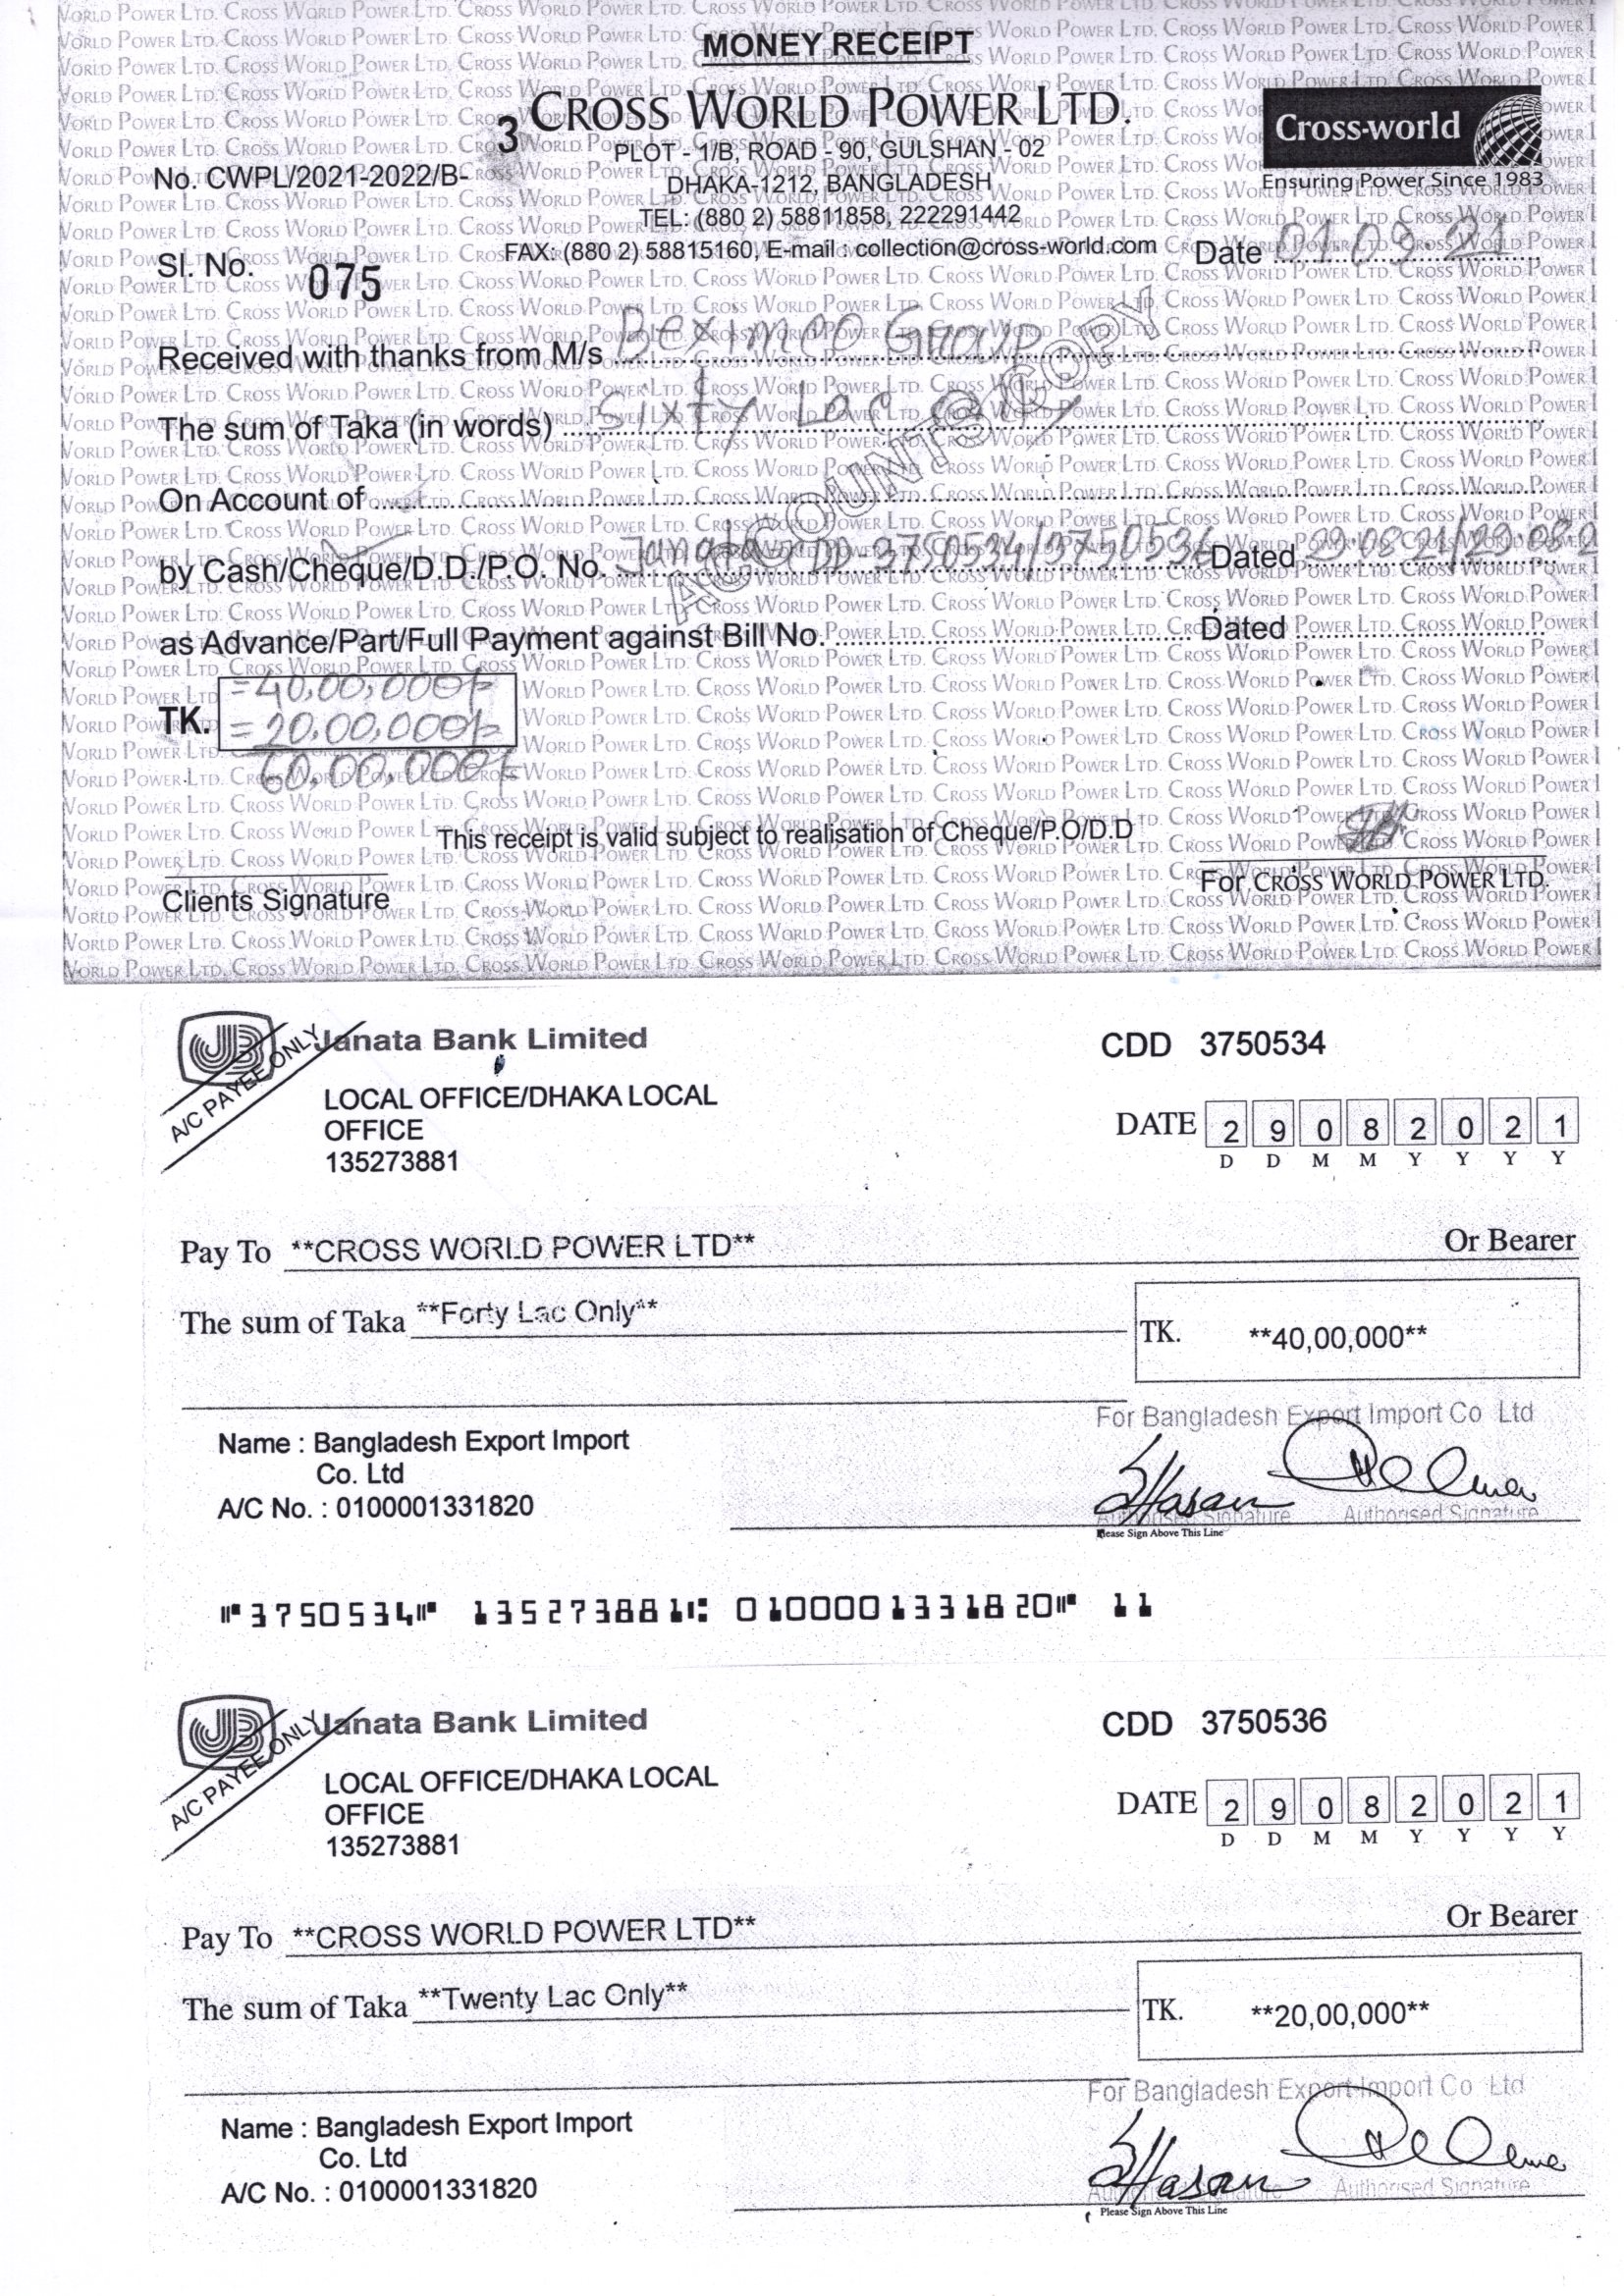 MONEY RECEIPT
CROSS WORLD POWER LTD.
PLOT - 1/B, ROAD - 90, GULSHAN - 02
DHAKA-1212, BANGLADESH
TEL: (880 2) 58811858, 222291442
FAX: (880 2) 58815160, E-mail : collection@cross-world.com
Cross-world
Ensuring Power Since 1983
No. CWPL/2021-2022/B- 3
Sl. No. 075
Date 01.09.21
Received with thanks from M/s Beximco Group
The sum of Taka (in words) Sixty Lac only
On Account of
by Cash/Cheque/D.D./P.O. No. Janata DD 3750534/3750536 Dated 29.08.21/29.08.2
as Advance/Part/Full Payment against Bill No. Dated
TK. =40,00,000/-
=20,00,000/-
60,00,000/-
ACCOUNTS COPY
This receipt is valid subject to realisation of Cheque/P.O/D.D
Clients Signature
For CROSS WORLD POWER LTD.
Janata Bank Limited
A/C PAYEE ONLY
CDD 3750534
LOCAL OFFICE/DHAKA LOCAL
OFFICE
135273881
DATE 2 9 0 8 2 0 2 1
D D M M Y Y Y Y
Pay To **CROSS WORLD POWER LTD** Or Bearer
The sum of Taka **Forty Lac Only**
TK. **40,00,000**
For Bangladesh Export Import Co Ltd
Name : Bangladesh Export Import
Co. Ltd
A/C No. : 0100001331820
Authorised Signature Authorised Signature
Please Sign Above This Line
⑈3750534⑈ 135273881⑆ 0100001331820⑈ 11
Janata Bank Limited
A/C PAYEE ONLY
CDD 3750536
LOCAL OFFICE/DHAKA LOCAL
OFFICE
135273881
DATE 2 9 0 8 2 0 2 1
D D M M Y Y Y Y
Pay To **CROSS WORLD POWER LTD** Or Bearer
The sum of Taka **Twenty Lac Only**
TK. **20,00,000**
For Bangladesh Export Import Co Ltd
Name : Bangladesh Export Import
Co. Ltd
A/C No. : 0100001331820
Authorised Signature Authorised Signature
Please Sign Above This Line